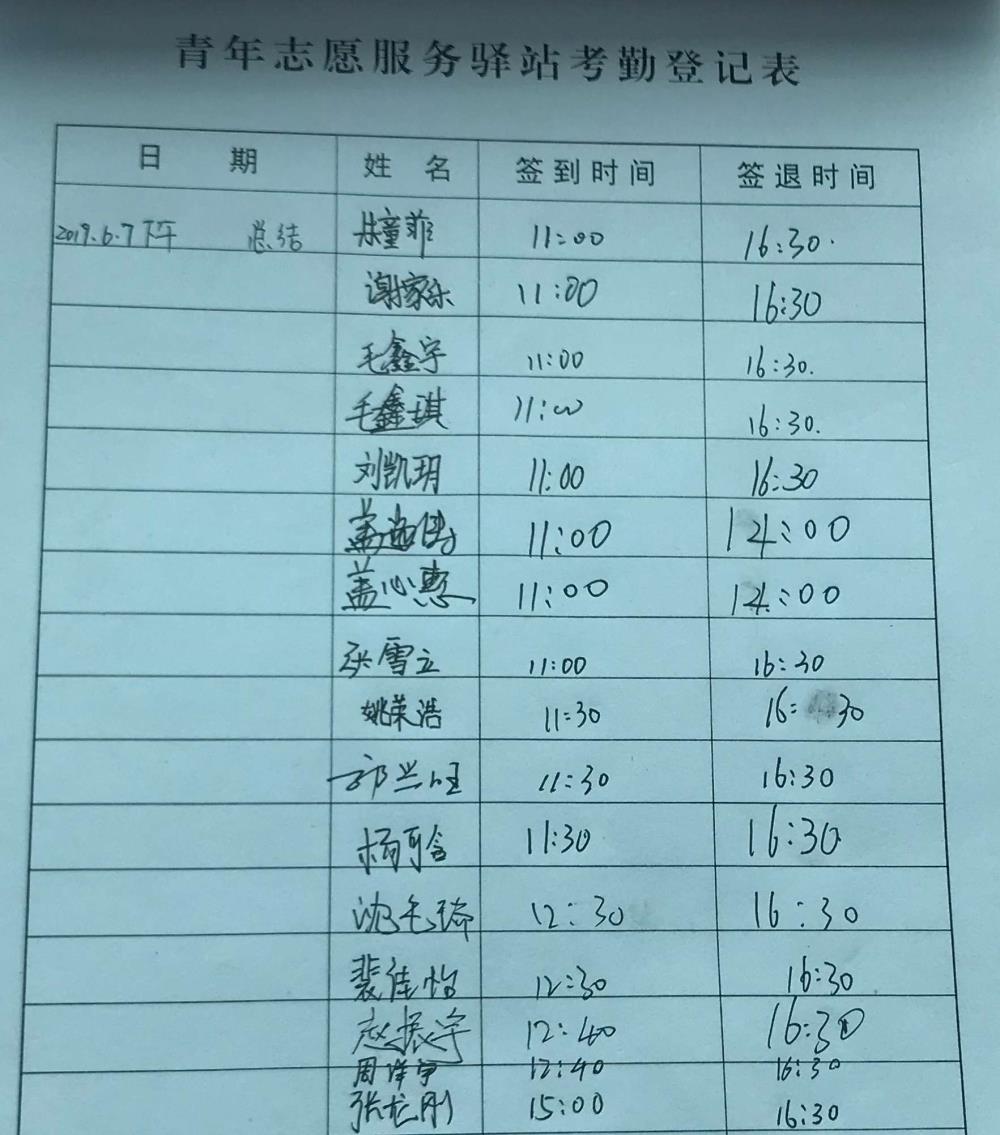 青年志愿服务驿站考勤登记表
日 期 姓 名 签到时间 签退时间
2019.6.7下午 总结 朱童菲 11:00 16:30.
谢家乐 11:00 16:30
毛鑫宇 11:00 16:30.
毛鑫琪 11:00 16:30.
刘凯玥 11:00 16:30
盖 11:00 14:00
盖心惠 11:00 14:00
张雪立 11:00 16:30
姚荣浩 11:30 16:30
郭兴旺 11:30 16:30
杨可含 11:30 16:30
沈毛琦 12:30 16:30
裴佳怡 12:30 16:30
赵振宇 12:40 16:30
周泽宇 12:40 16:30
张龙刚 15:00 16:30